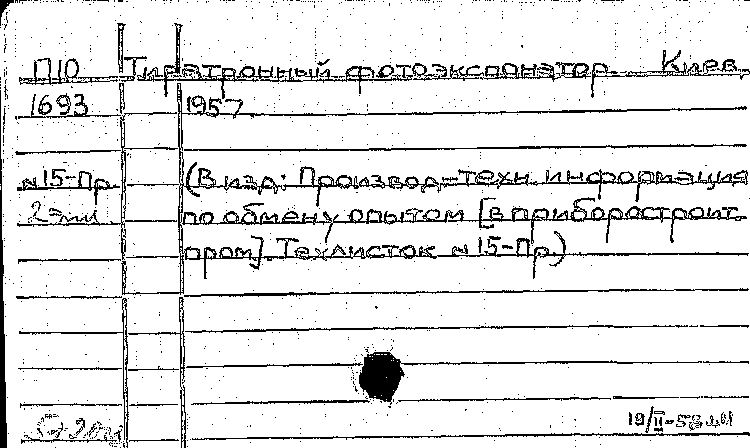 П10 Тиратронный фотоэкспонатор. Киев,
1693 1957.
№15-Пр. (В изд: Производ-техн. информация
2 экз. по обмену опытом [в приборостроит.
пром]. Техлисток №15-Пр.)
19/II-58